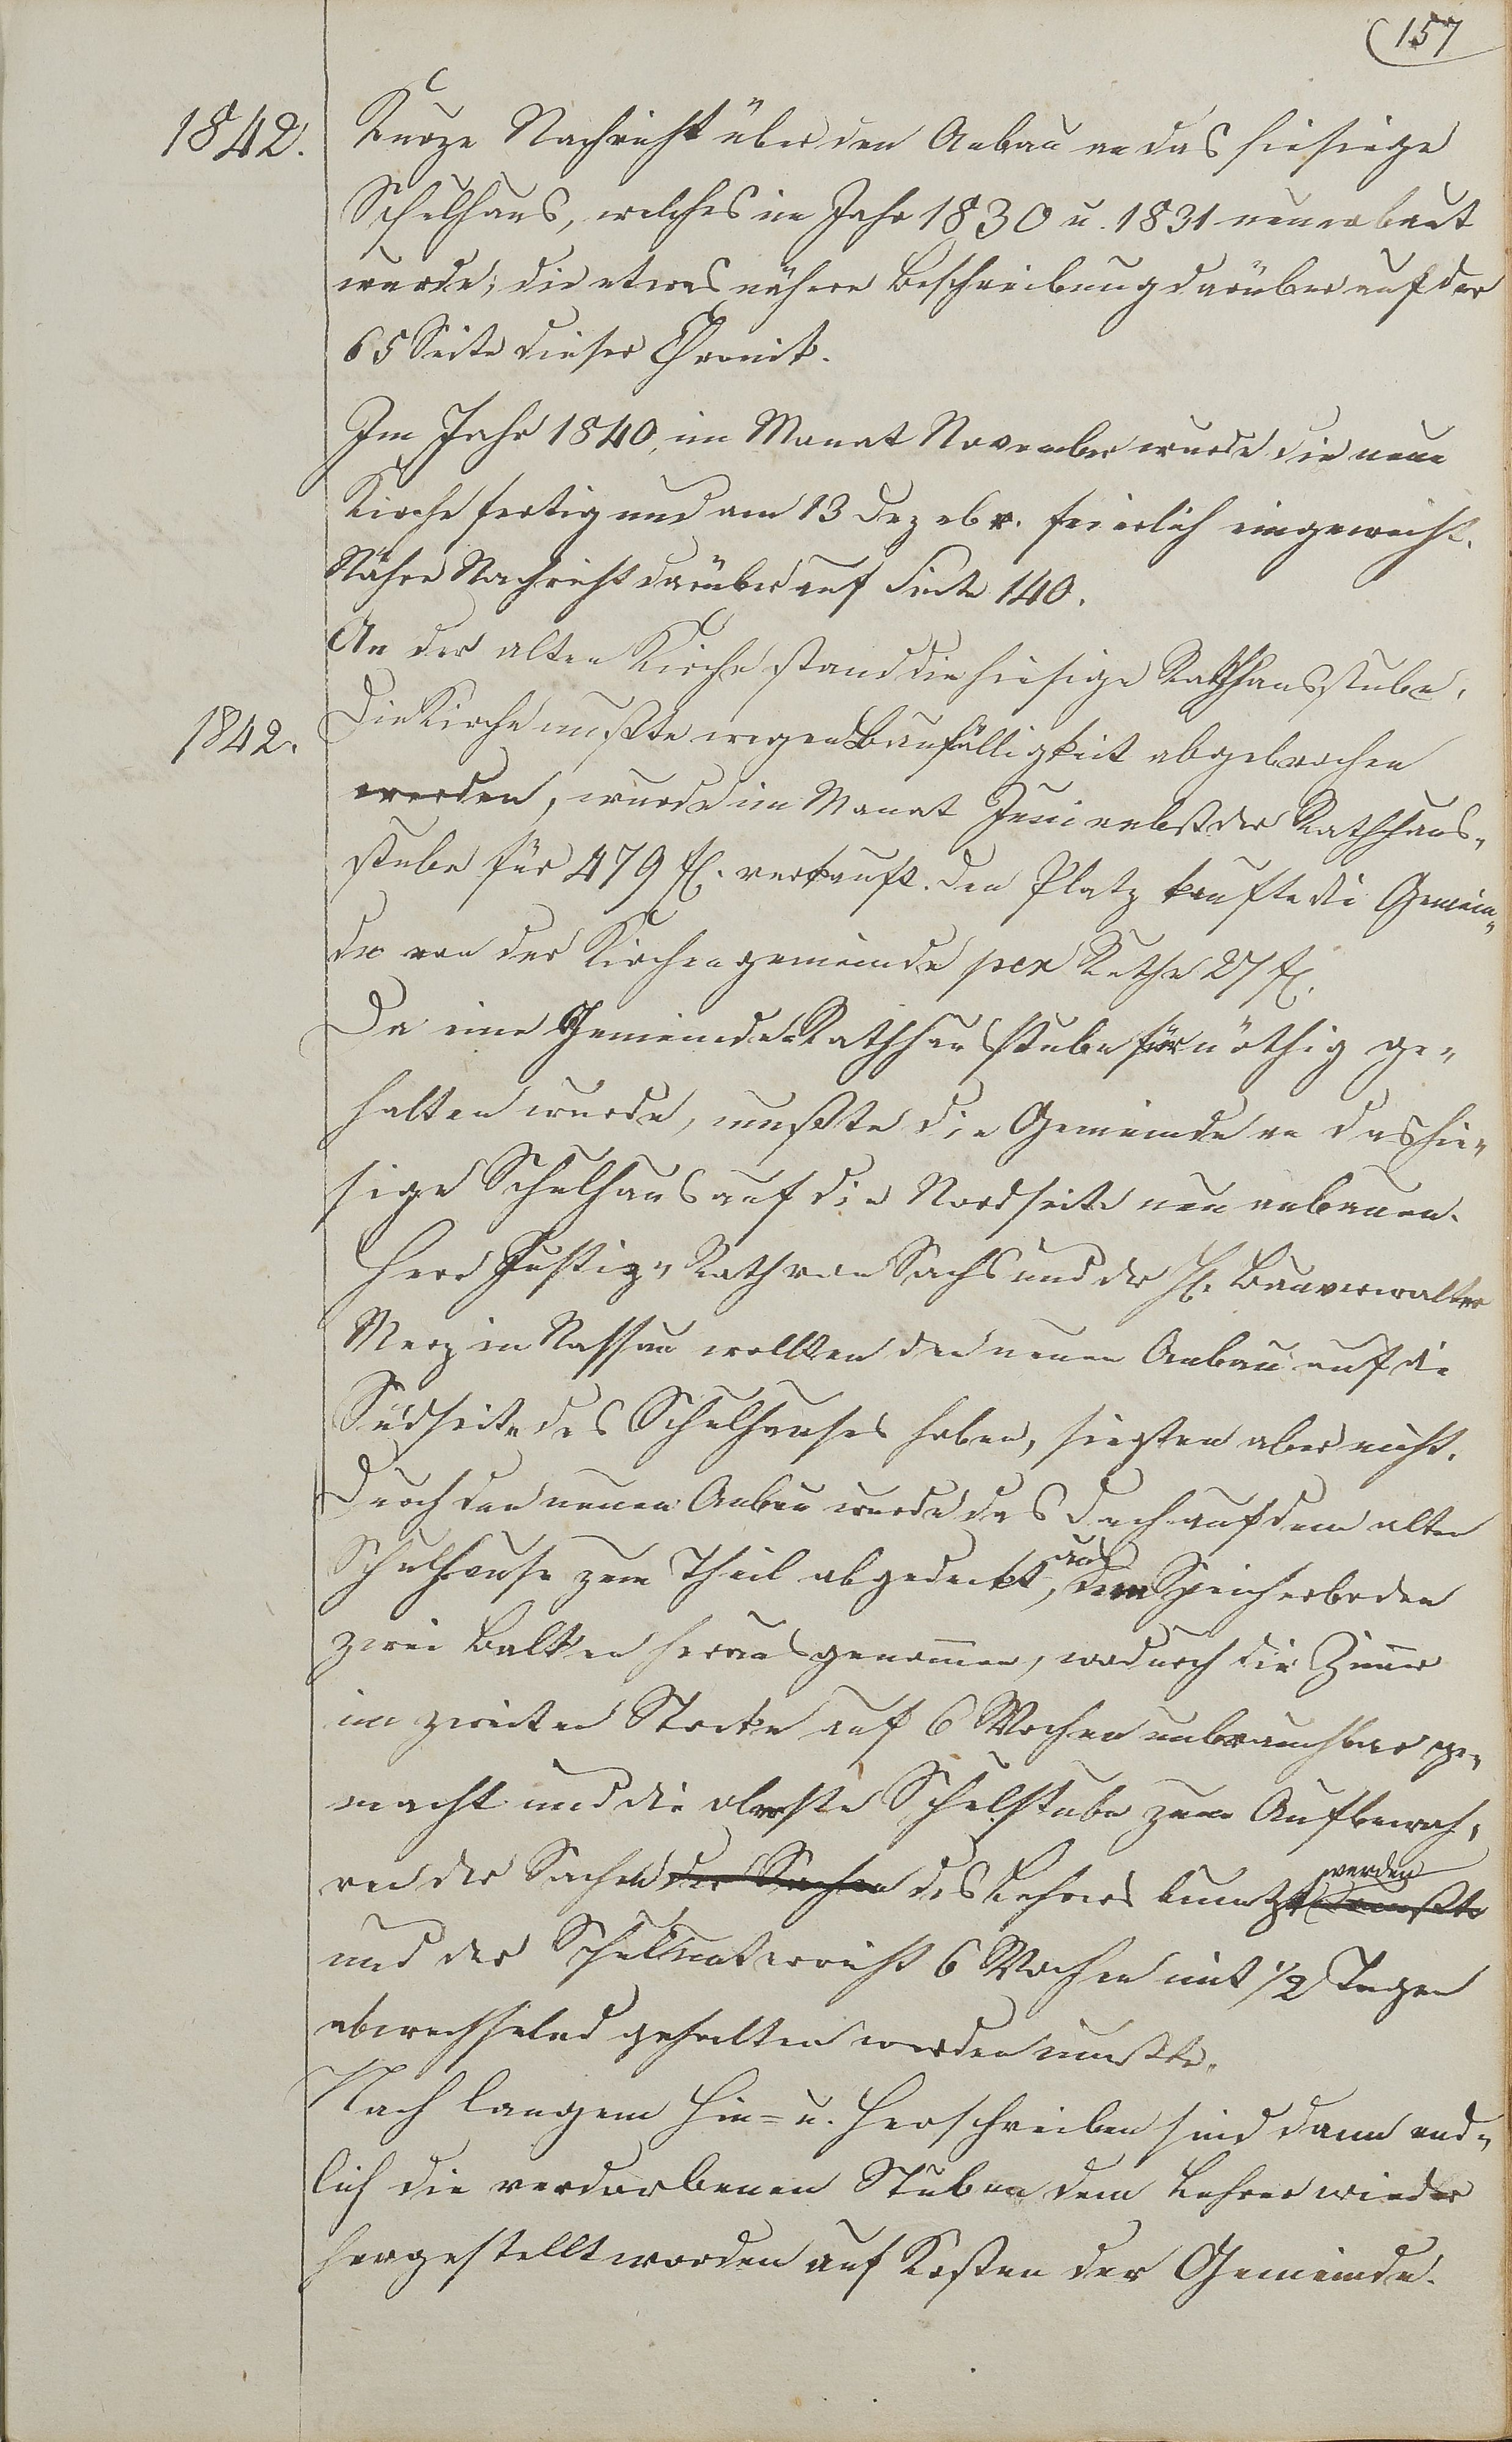 157
1842. Kurze Nachricht über den Anbau an das hiesige
Schulhaus, welches im Jahr 1830 u. 1831 neuerbaut
wurde; die etwas nähere Beschreibung darüber auf der
65 Seite dieser Chronik.
Im Jahr 1840, im Monat November wurde die neue
Kirche fertig und am 13 Dezebr. feierlich eingeweiht.
Nähre Nachricht darüber auf Seite 140.
An der alten Kirche stand die hiesige Rathhausstube.
1842. Die Kirche mußte wegen Baufälligkeit abgebrochen
werden, wurde im Monat Juni nebst der Rathhaus-
stube für 479 fl. verkauft. Den Platz kaufte die Gemein-
de von der Kirchengemeinde per Ruthe 27 fl.
Da eine Gemeinde-Rathhausstube für nöthig ge-
halten wurde, mußte die Gemeinde an das hie-
sige Schulhaus auf die Nordseite neu anbauen.
Herr Justiz-Rath von Sachs und der H. Bauverwalter
Merz in Nassau wollten den neuen Anbau auf die
Südseite des Schulhauses haben, siegten aber nicht.
Durch den neuen Anbau wurde das Dach auf dem alten
Schulhause zum Theil abgedeckt, aus dem Speicherboden
zwei Balken herausgenommen, wodurch die Zimmer
im zweiten Stocke auf 6 Wochen unbrauchbar ge-
macht und die oberste Schulstube zum Aufbewah-
ren der Sachen der Sachen des Lehrers benutzt werden mußte
und der Schulunterricht 6 Wochen mit 1/2 Tagen
abwechselnd gehalten werden mußte.
Nach langem Hin- u. Herschreiben sind dann end-
lich die verdorbenen Stuben dem Lehrer wieder
hergestellt worden auf Kosten der Gemeinde.